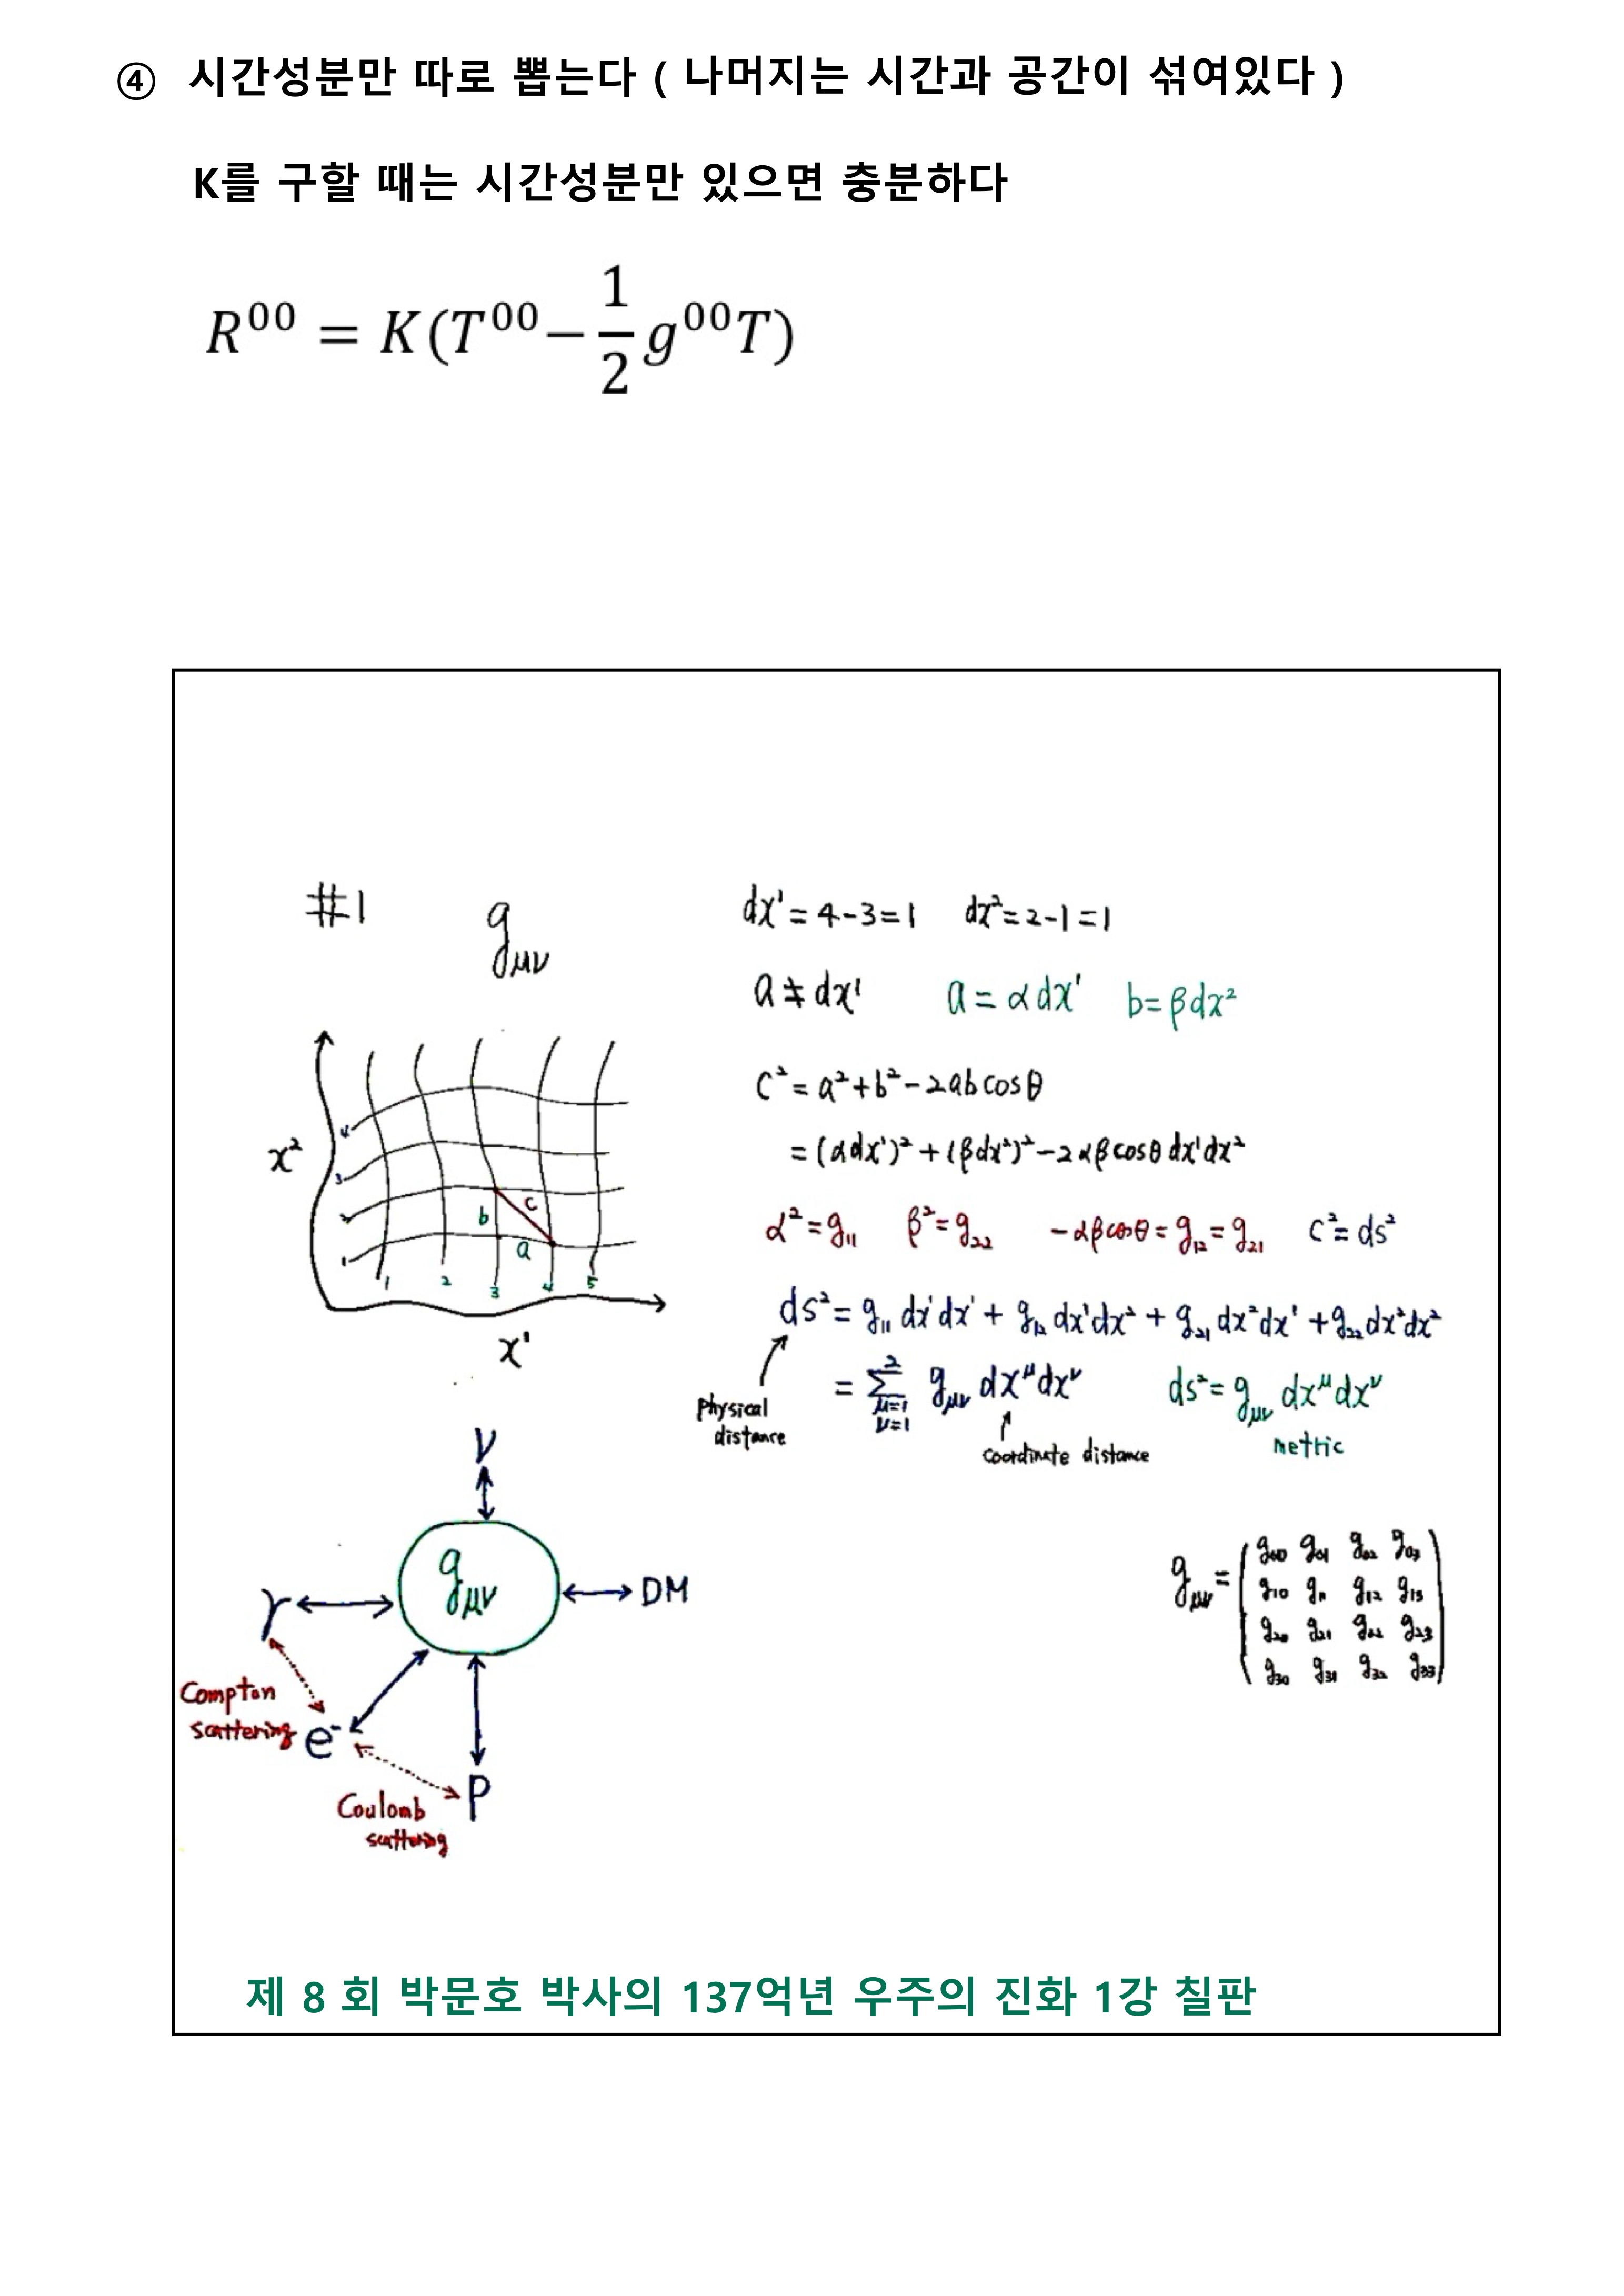 ④ 시간성분만 따로 뽑는다 ( 나머지는 시간과 공간이 섞여있다 )
K를 구할 때는 시간성분만 있으면 충분하다
R⁰⁰ = K(T⁰⁰− 1/2 g⁰⁰T)
#1 g_μν
x²
4
3
2
1
b c
a
1 2 3 4 5
x¹
dx¹ = 4-3=1 dx²=2-1=1
a ≠ dx¹ a = α dx¹ b= β dx²
c² = a²+b²-2ab cosθ
= (αdx¹)² + (βdx²)² - 2αβcosθ dx¹dx²
α²=g₁₁ β²=g₂₂ -αβcosθ = g₁₂ = g₂₁ c²= ds²
ds² = g₁₁ dx¹dx¹ + g₁₂ dx¹dx² + g₂₁ dx²dx¹ + g₂₂ dx²dx²
= Σ_{μ=1 ν=1}^{2} g_μν dx^μ dx^ν ds² = g_μν dx^μ dx^ν
Physical distance
coordinate distance
metric
ν
g_μν
γ
DM
Compton scattering
e⁻
P
Coulomb scattering
g_μν = ( g₀₀ g₀₁ g₀₂ g₀₃
g₁₀ g₁₁ g₁₂ g₁₃
g₂₀ g₂₁ g₂₂ g₂₃
g₃₀ g₃₁ g₃₂ g₃₃ )
제 8 회 박문호 박사의 137억년 우주의 진화 1강 칠판